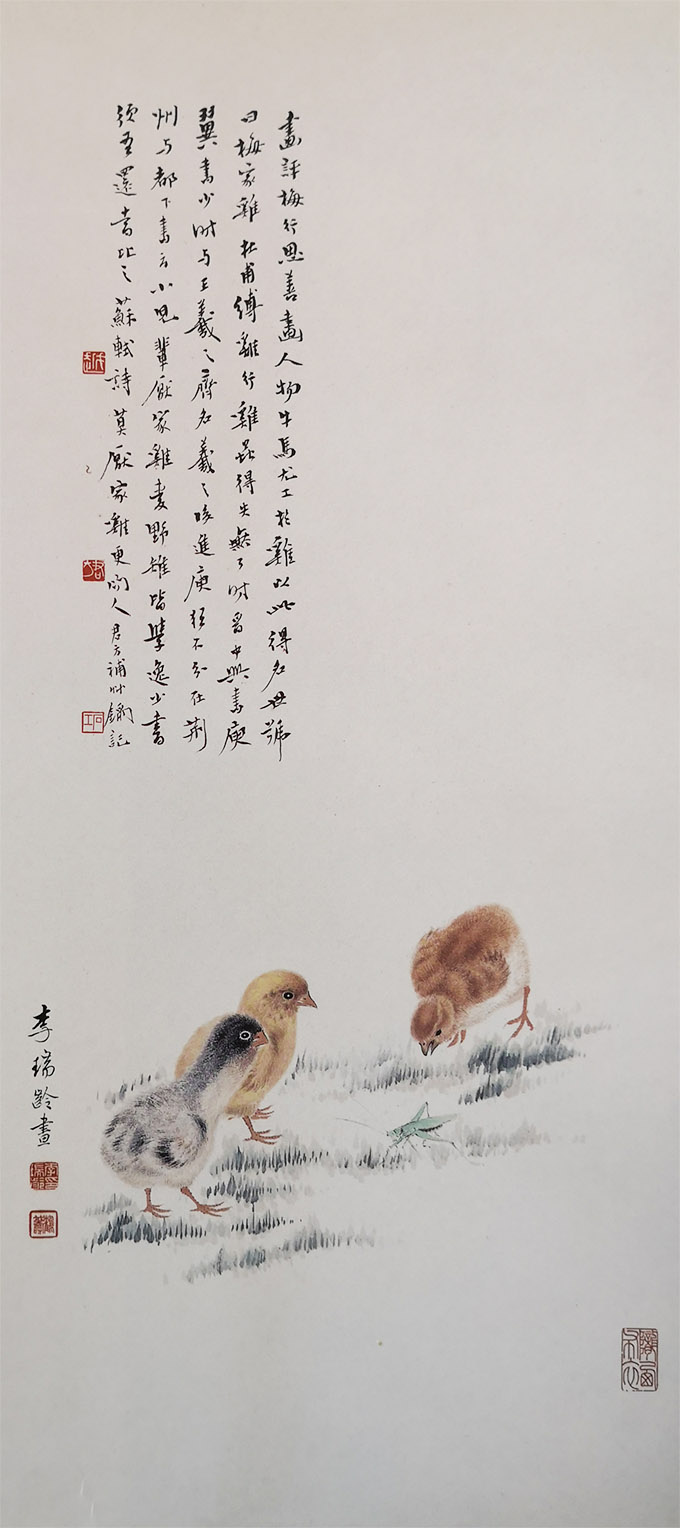 畫評梅行思善畫人物牛馬尤工於雞以此得名世號
曰梅家雞杜甫縛雞行雞蟲得失無了時晉中興書庾
翼書少时与王羲之齊名羲之後進庾猶不分在荆
州与都下書云小兒輩厭家雞愛野雉皆學逸少書
須吾還當比之蘇軾詩莫厭家雞更問人君方補草鏑記
李瑞齡畫